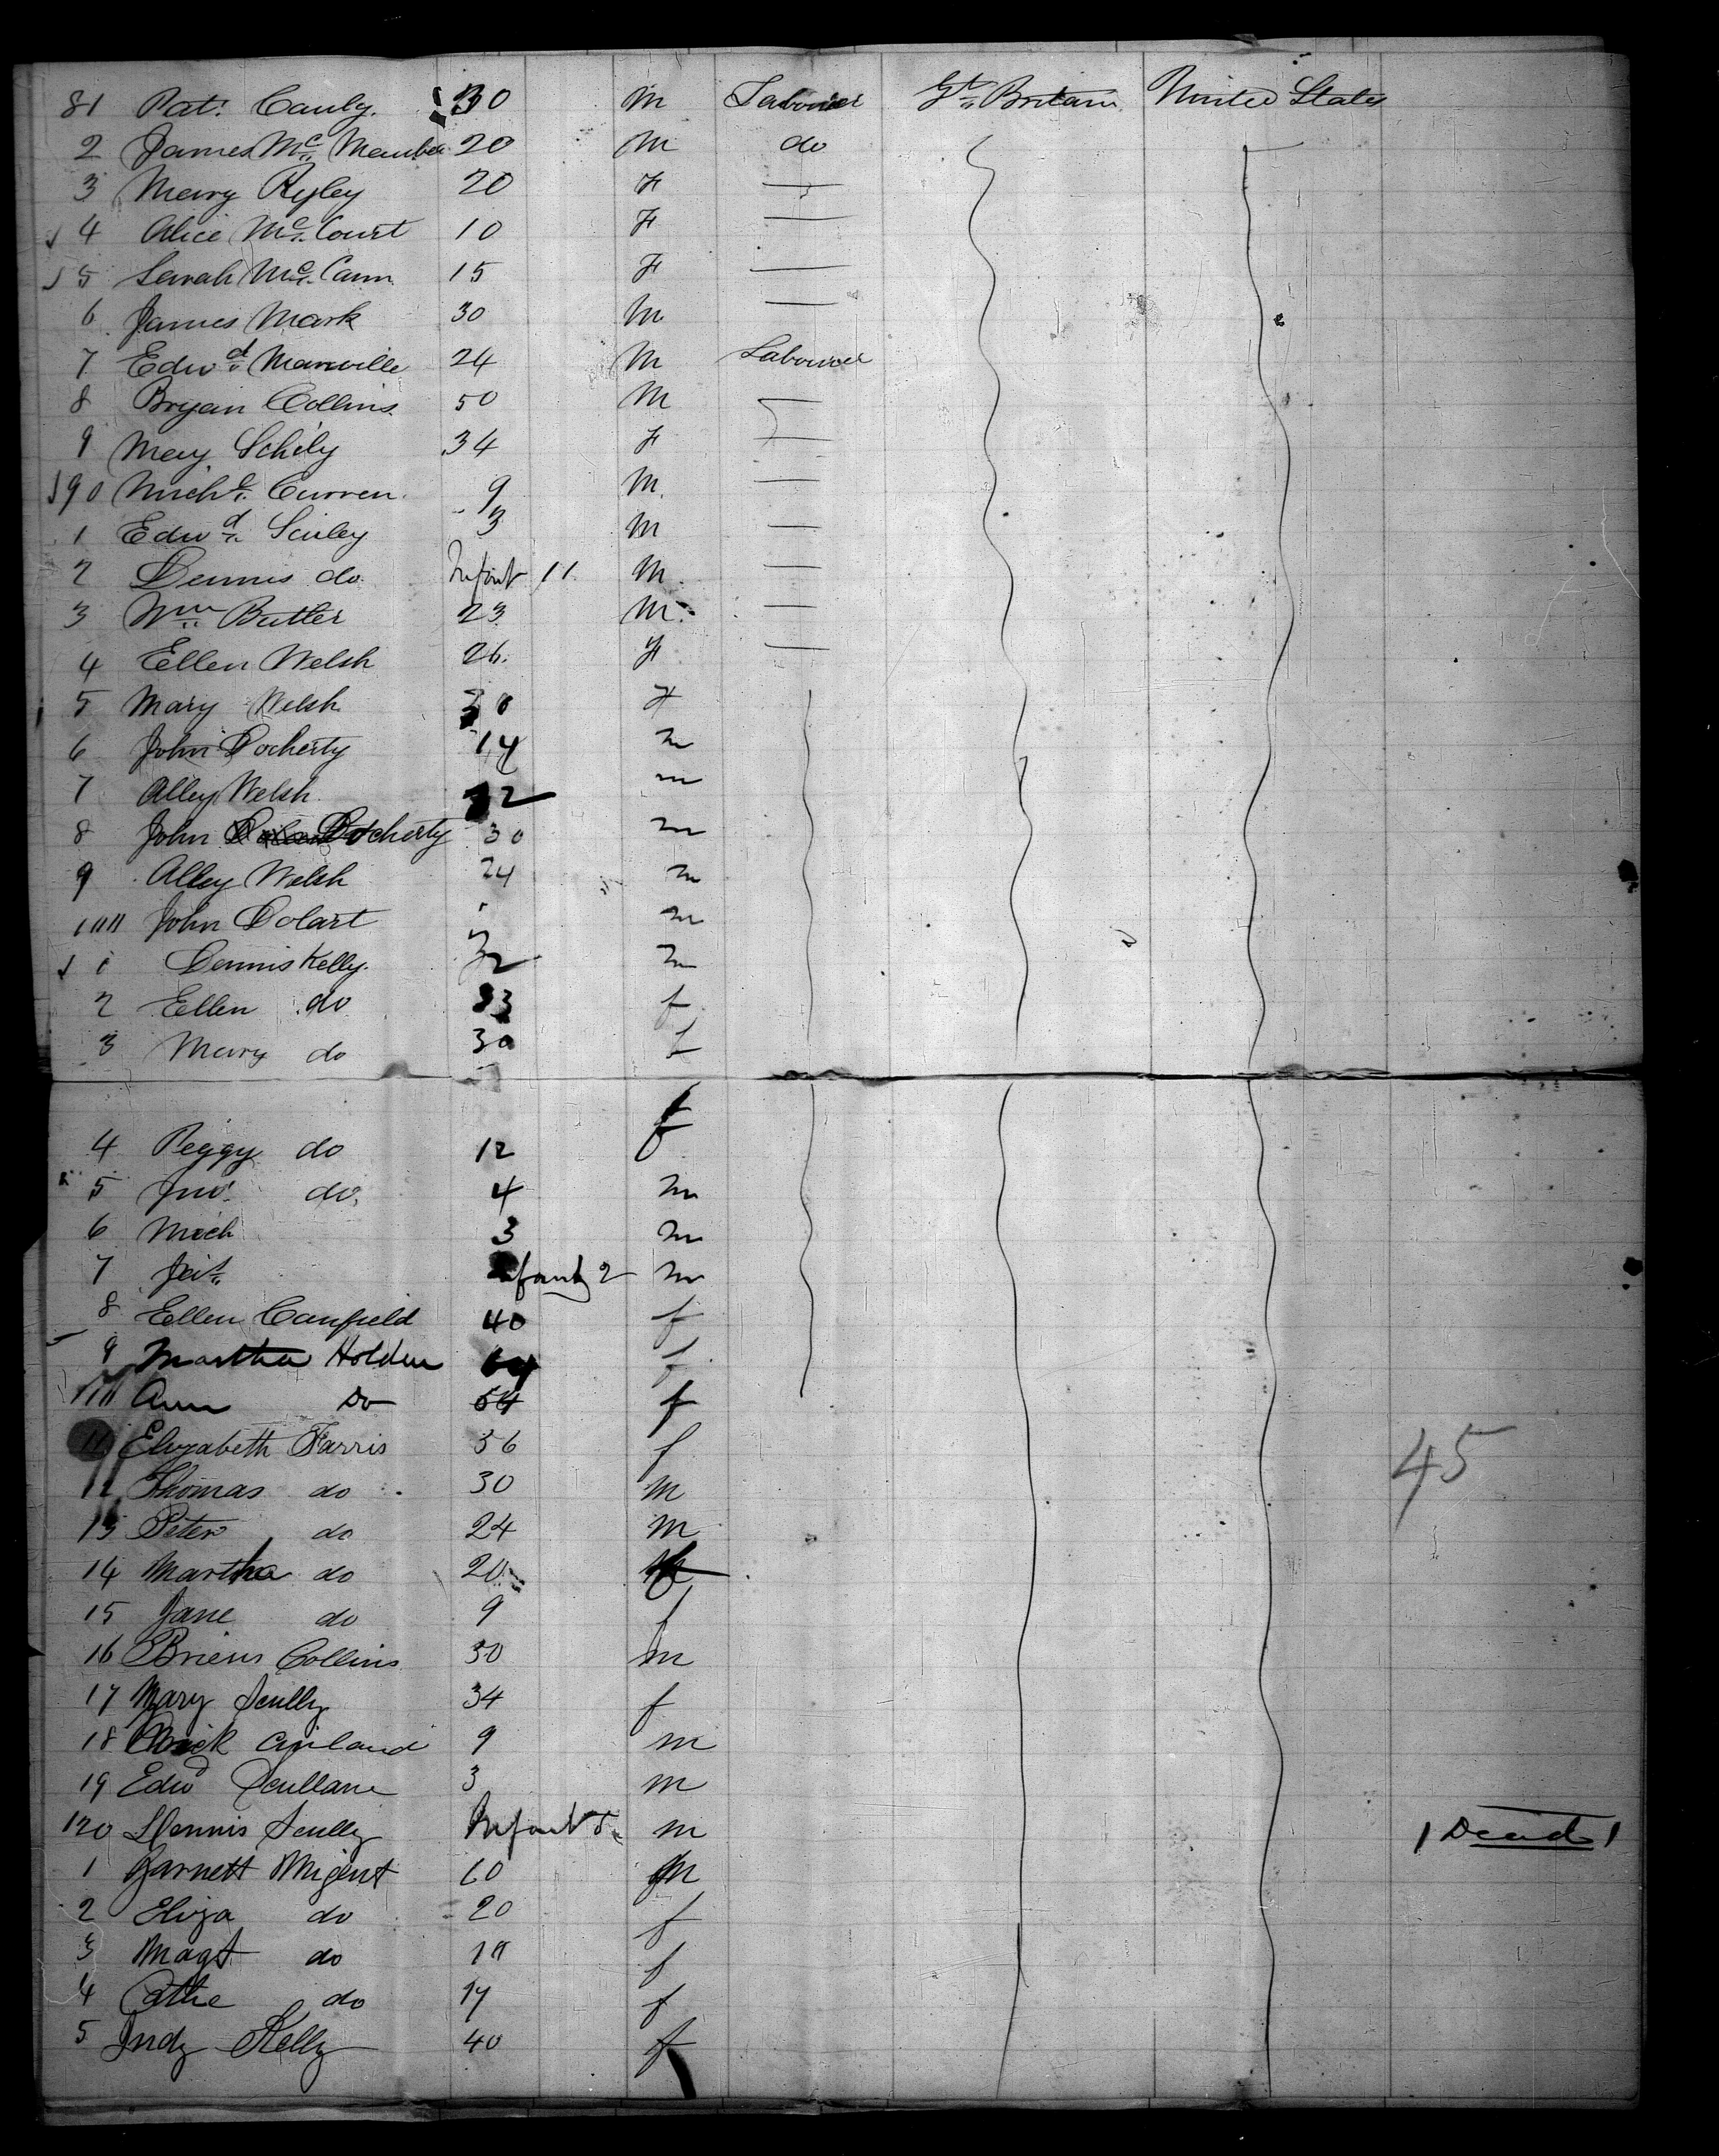 81 Pat. Cauly. 30 M Labourer Gt. Britain United States
2 James Mc. 20 M do
3 Mary Ryley 20 F
4 Alice Mc. Court 10 F
5 Sarah Mc. Cann 15 F
6 James Mark 30 M
7 Edwd. Manville 24 M Labourer
8 Bryan Collins 50 M
9 Mary 34 F
90 Michl. Curren 9 M
1 Edwd. 3 M
2 Dennis do Infant 11 M
3 Wm. Butler 23 M
4 Ellen Welsh 26 F
5 Mary Welsh 30 F
6 John Docherty 14 m
7 Alley Welsh 12 m
8 John Docherty 30 m
9 Alley Welsh 24 m
100 John Dolart m
1 Dennis Kelly 32 m
2 Ellen do 33 f
3 Mary do 30 f
f
4 Peggy do 12 f
5 Jno. do 4 m
6 Mich 3 m
7 Infant 2 m
8 Ellen Canfield 40 f
9 Martha Holden f
110 Ann Do 54 f
11 Elizabeth Farris 56 f
12 Thomas do 30 m
13 Peter do 24 m
14 Martha do 20 f
15 Jane do 9 f
16 Briens Collins 30 m
17 Mary Scully 34 f
18 Mick 9 m
19 Edwd Scullane 3 m
120 Dennis Scully Infant m Dead
1 Garnett 60 m
2 Eliza do 20 f
3 Magt do 18 f
4 Cathe do 17 f
5 Judy Kelly 40 f
45